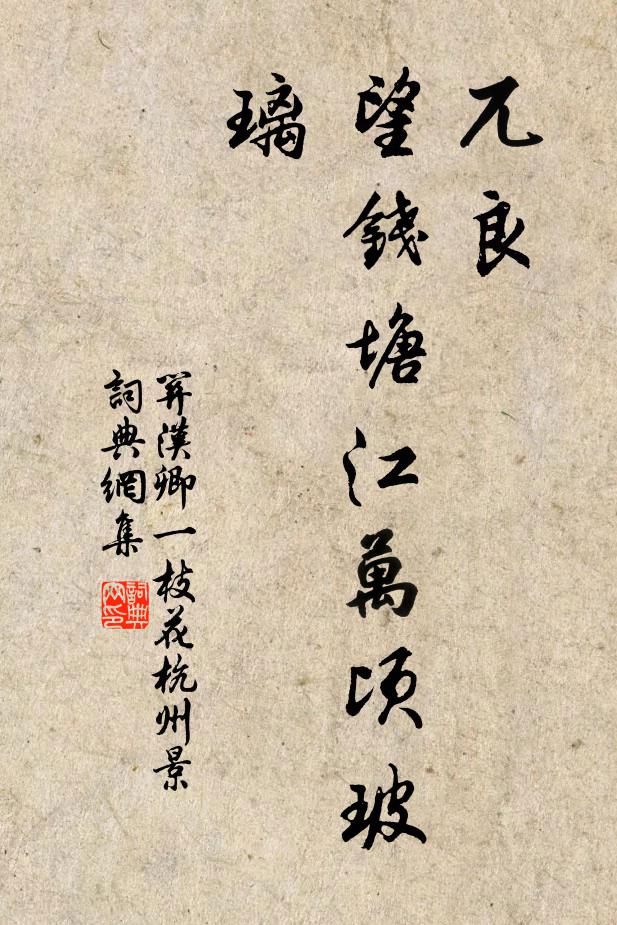 兀良
望錢塘江萬頃玻
璃
關漢卿一枝花杭州景
詞典網集
詞典
网印